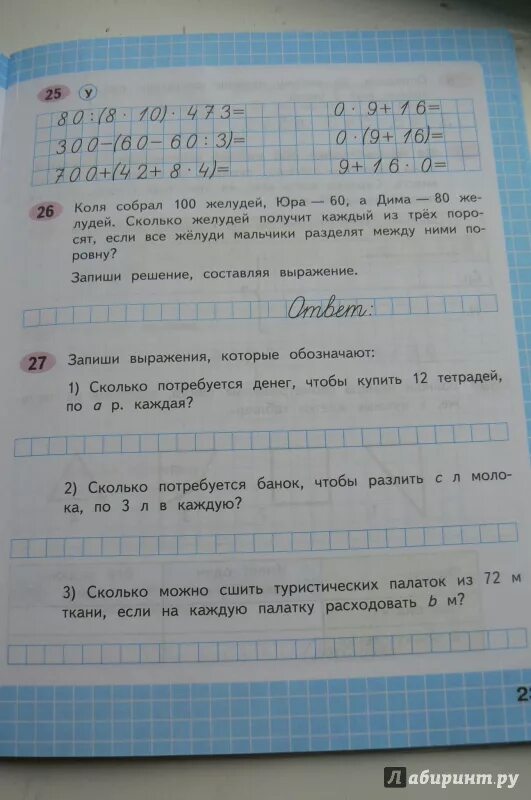 25 У
80:(8·10)·473= 0·9+16=
300-(60-60:3)= 0·(9+16)=
700+(42+8·4)= 9+16·0=
26 Коля собрал 100 желудей, Юра — 60, а Дима — 80 же-
лудей. Сколько желудей получит каждый из трёх поро-
сят, если все жёлуди мальчики разделят между ними по-
ровну?
Запиши решение, составляя выражение.
Ответ:
27 Запиши выражения, которые обозначают:
1) Сколько потребуется денег, чтобы купить 12 тетрадей,
по a р. каждая?
2) Сколько потребуется банок, чтобы разлить c л моло-
ка, по 3 л в каждую?
3) Сколько можно сшить туристических палаток из 72 м
ткани, если на каждую палатку расходовать b м?
Лабиринт.ру